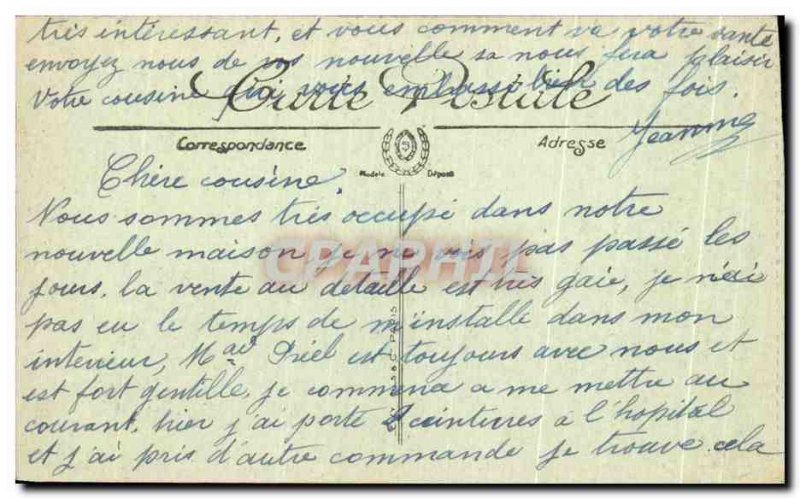 très intéressant, et vous comment va votre santé
envoyez nous de vos nouvelle sa nous fera plaisir
Votre cousine qui vous embrasse bien des fois.
Jeanne
Carte Postale
Correspondance
Adresse
Modèle Déposé
Chère cousine,
Nous sommes très occupé dans notre
nouvelle maison je ne vois pas passé les
jours, la vente au detaille est très gaie, je n'ai
pas eu le temps de m'installe dans mon
interieur, Mme Préel est toujours avec nous et
est fort gentille, je commence a me mettre au
courant, hier j'ai porté 2 ceintures à l'hopital
et j'ai pris d'autre commande je trouve cela
CPARAMA
PARIS